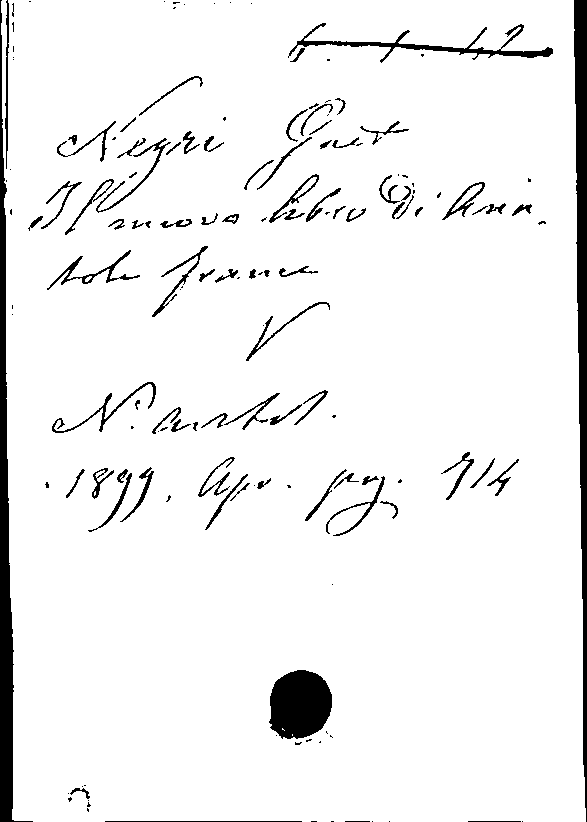 6. 1. 42
Negri Gaet
Il nuovo libro di Ana-
tole France
V
N. antol.
1899. Apr. pag. 714